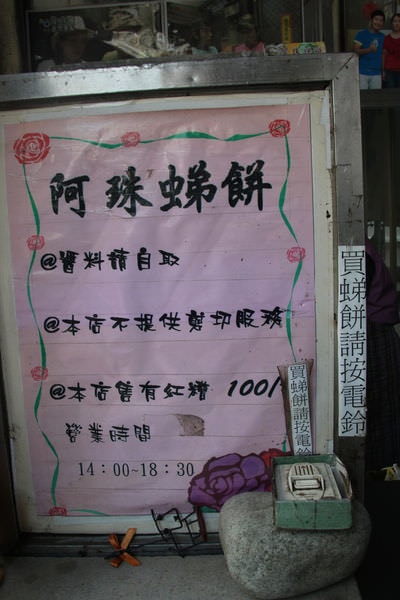 阿珠蛦餅
@醬料請自取
@本店不提供剪切服務
@本店售有紅糟 100/
營業時間
14：00~18：30
買蛦餅請按電鈴
買蛦餅請按電鈴